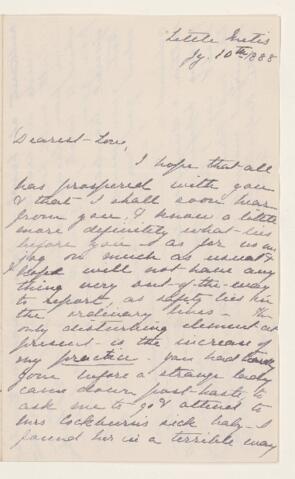 Little Metis
Jy. 10th 1888
Dearest Love,
I hope that all
has prospered with you
& that I shall soon hear
from you, & know a little
more definitely what lies
before you – as for us we
jog on much as usual &
I hope will not have any
thing very out-of-the-way
to report, as safety lies in
the ordinary lines – the
only disturbing element at
present – is the increase of
my practice. You had
gone before a strange lady
came down post haste to
ask me to go & attend to
Mrs Cockburn's sick baby. I
found her in a terrible way